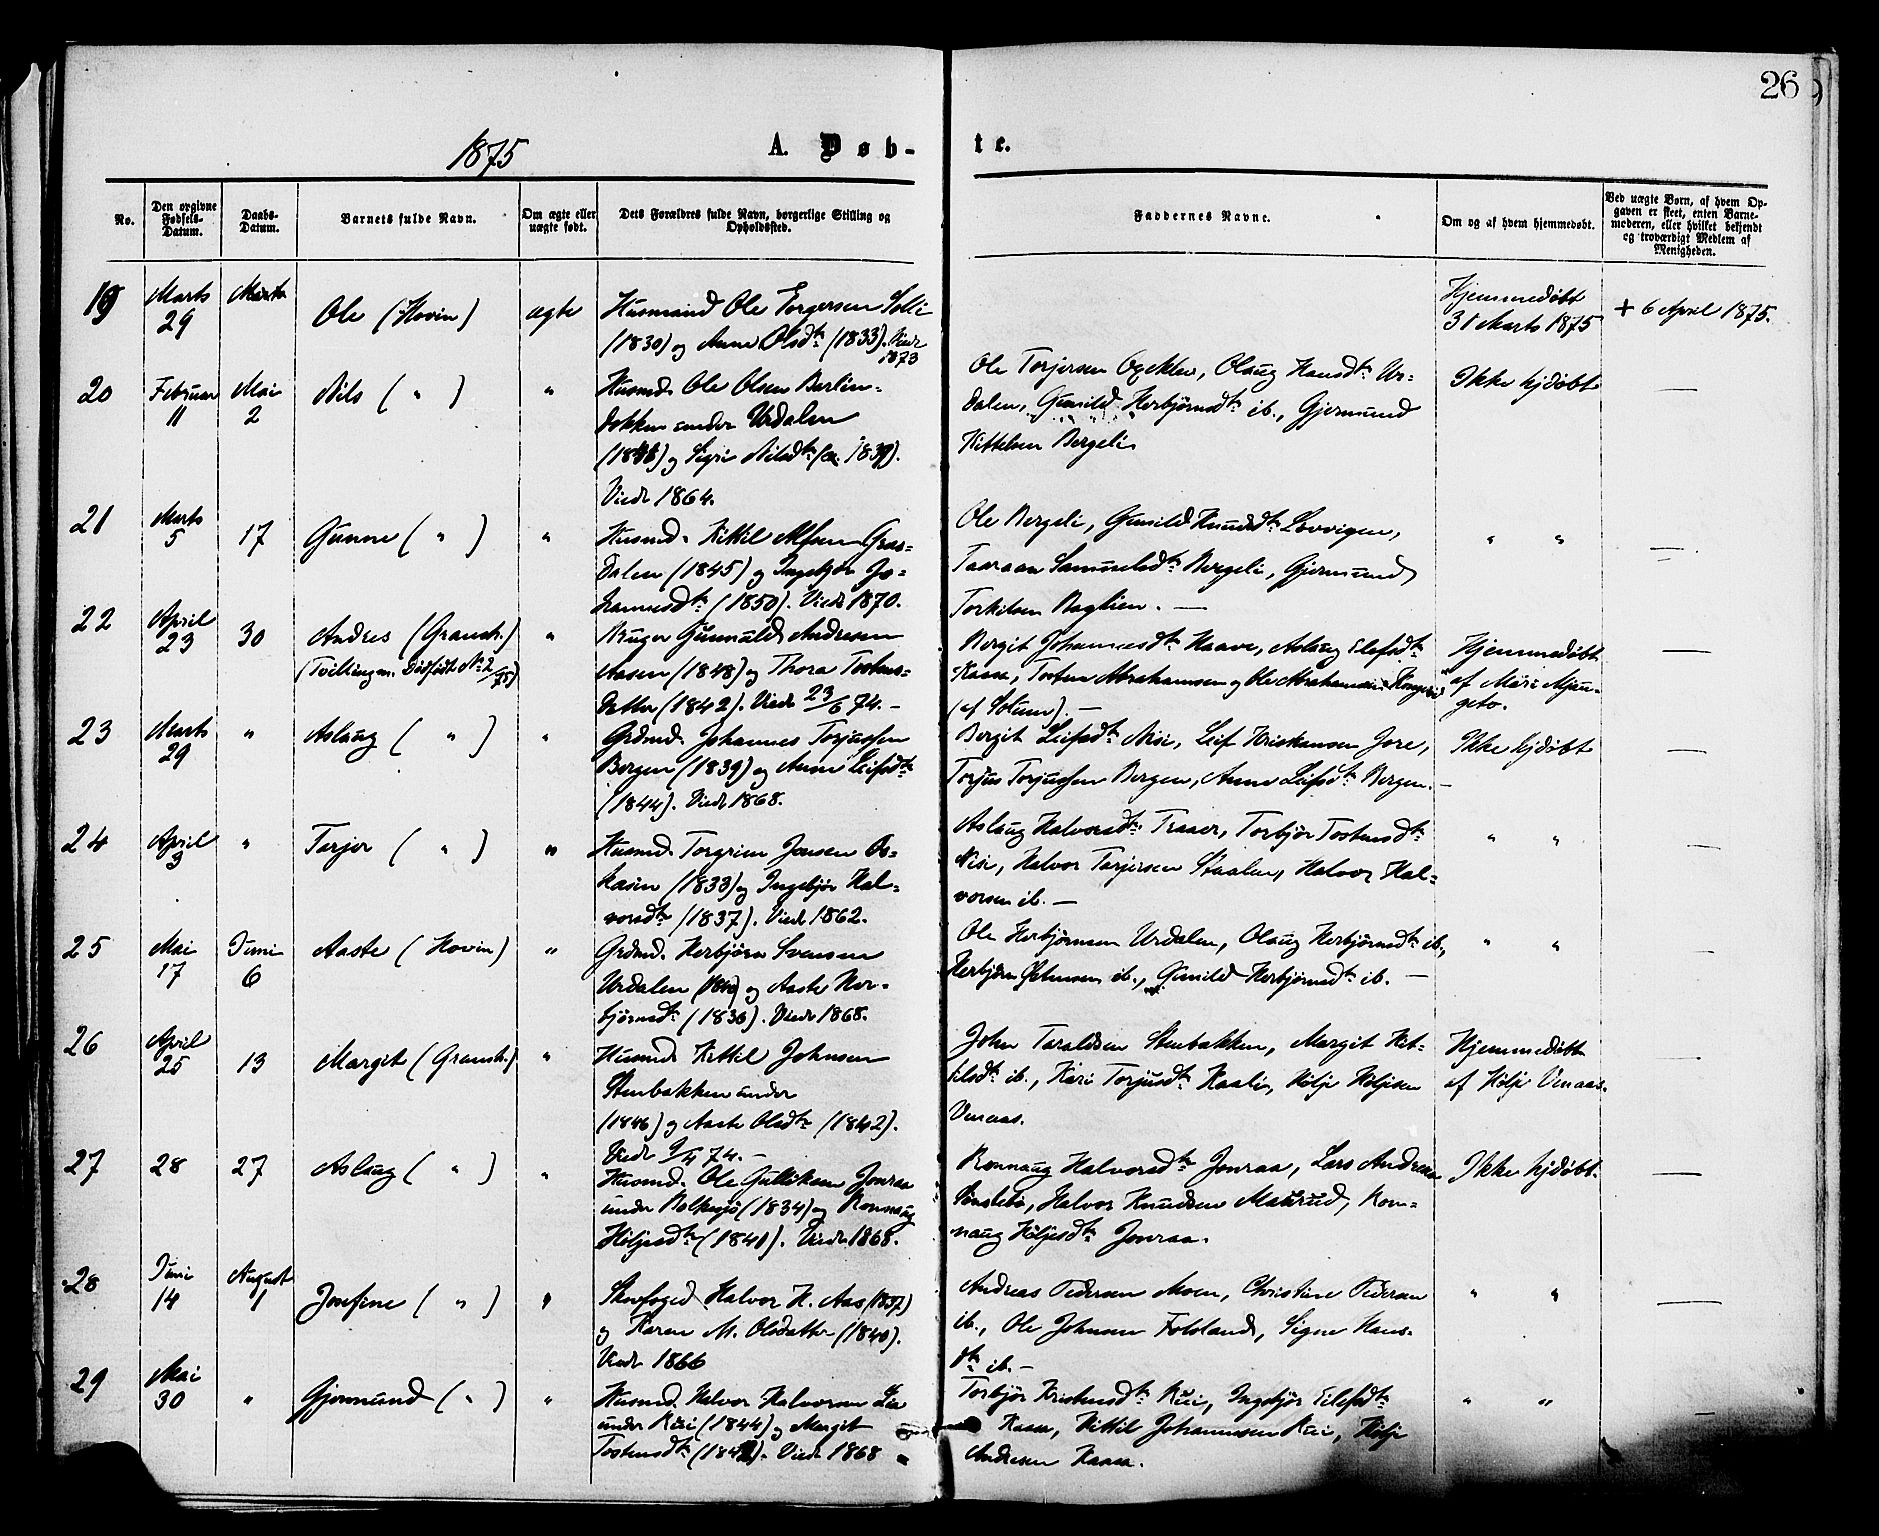 26
1875
A. Døb-
te.
No.
Den opgivne Fødsels-Datum.
Daabs-Datum.
Barnets fulde Navn.
Om ægte eller uægte født.
Dets Forældres fulde Navn, borgerlige Stilling og Opholdssted.
Faddernes Navne.
Om og af hvem hjemmedøbt.
Ved uægte Børn, af hvem Opgaven er skeet, enten Barnemoderen, eller hvilket bekjendt og troværdigt Medlem af Menigheden.
19 Marts 29
Ole (Hovin) ægte
Husmand Ole Torgersen Solli
(1830) og Anne Olsdtr (1833). Viede 1873
Hjemmedøbt
31 Marts 1875
+ 6 April 1875.
20 Februar 11 Mai 2
Nils ( " ) "
Husmd. Ole Olsen Berlin-
dokken under Urdalen
og Sigri Nilsdtr
Viede 1864.
Ole Torjersen Ogeklev, Olaug Hansdtr Ur-
dalen, Gunild Herbjørnsdtr ib., Gjermund
Kittelsen Bergeli
Ikke hjdøbt —
21 Marts 5 17
Gunne ( " ) "
Husmd. Kittil Alfsen Gras-
dalen (1845) og Ingebjør Jo-
hannesdtr (1850). Viede 1870.
Ole Bergeli, Gunild Knudsdtr
Samuelsdtr Bergeli, Gjermund
Torkilsen Baglien. —
" " —
22 April 23 30
Andres (Gransh.) "
(Tvillingen. Dødfødt No 2/75)
Bruger Gunnuld Andresen
Aasen (1848) og Thora Tostens-
datter (1842). Viede 23/6 74. —
Bergit Johannesdtr Haave, Aslaug Elefsdtr
Kaasa, Tosten Abrahamsen og Ole Abrahamsen Kongerud
(af Solum). —
Hjemmedøbt
af Mari
—
23 Marts 29 "
Aslaug ( " ) "
Grdmd. Johannes Torjussen
Bergen (1839) og Anne Leifsdtr
(1844). Viede 1868.
Bergit Leifsdtr Nisi, Leif Kristiansen Jore,
Torjus Torjussen Bergen, Anne Leifsdtr Bergen. —
Ikke hjdøbt —
24 April 3 "
Tarjer ( " ) "
Husmd. Torgrim Jensen Os-
kasin (1833) og Ingebjør Hal-
vorsdtr (1837). Viede 1862.
Aslaug Halvorsdtr Traaer, Torbjør Tostensdtr
Nisi, Halvor Tarjersen Staalen, Halvor Hal-
vorsen ib. —
" " —
25 Mai 17 Juni 6
Aaste (Hovin) "
Grdmd. Herbjørn Svensen
Urdalen og Aaste Her-
bjørnsdtr (1836). Viede 1868.
Ole Herbjørnsen Urdalen, Olaug Herbjørnsdtr ib.,
Herbjørn ib., Gunild Herbjørnsdtr ib. —
" " —
26 April 25 13
Margit (Gransh.) "
Husmd. Kittil Johnsen
Stenbakken under
(1846) og Aaste Olsdtr (1842).
Viede 74. —
John Taraldsen Stenbakken, Margit Kit-
tilsdtr ib., Kari Torjusdtr Kaali, Hølje Høljesen
Venaas.
Hjemmedøbt
af Hølje Venaas. —
27 28 27
Aslaug ( " ) "
Husmd. Ole Gulliksen Jonraa
under Bolkesjø (1834) og Ronnaug
Høljesdtr (1841). Viede 1868.
Ronnaug Halvorsdtr Jonraa, Lars Andresen
Sønstebø, Halvor Knudsen Maurud, Ron-
naug Høljesdtr Jonraa.
Ikke hjdøbt. —
28 Juni 14 August 1
Josefine ( " ) "
Skovfoged Halvor H. Aas (1837)
og Karen M. Olsdatter (1840).
Viede 1866
Andreas Pedersen Moen, Christine Pedersen
ib., Ole Johnsen Folsland, Signe Hans-
dtr ib. —
" " —
29 Mai 30 "
Gjermund ( " ) "
Husmd. Halvor Halvorsen Lia
under Rui (1844) og Margit
Tostensdtr Viede 1868
Torbjør Kristensdtr Rui, Ingebjør Eilefsdtr
Kaasa, Kittil Johannesen Rui, Hølje
Andresen Kaasa.
" " —